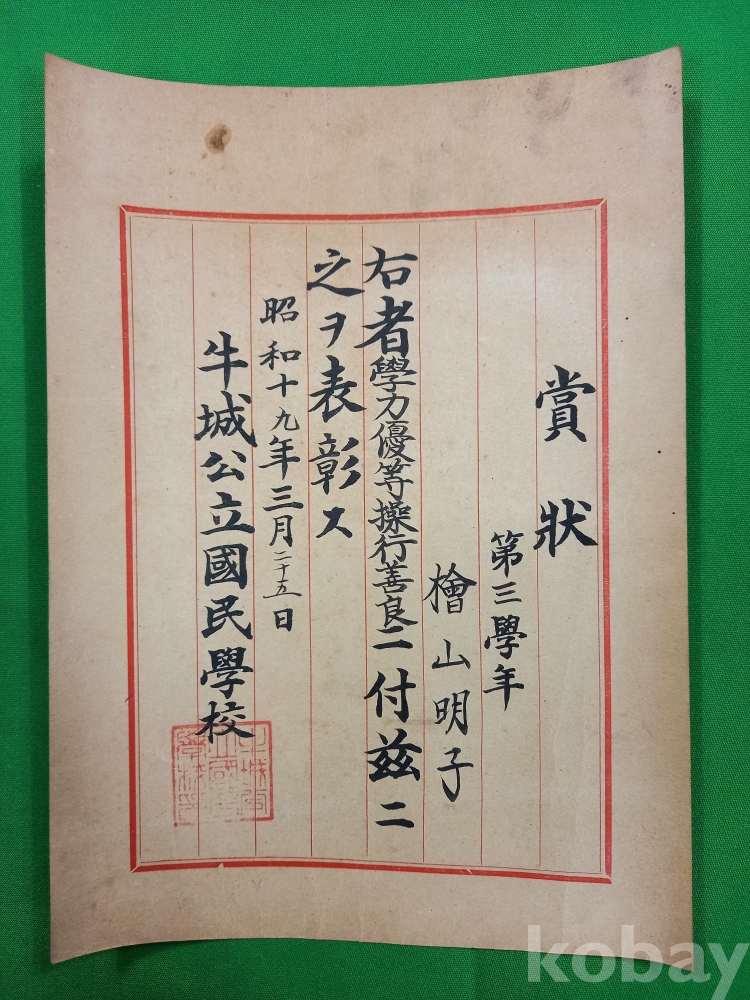 賞狀
第三學年
檜山明子
右者學力優等操行善良ニ付茲ニ
之ヲ表彰ス
昭和十九年三月二十五日
牛城公立國民學校
kobay